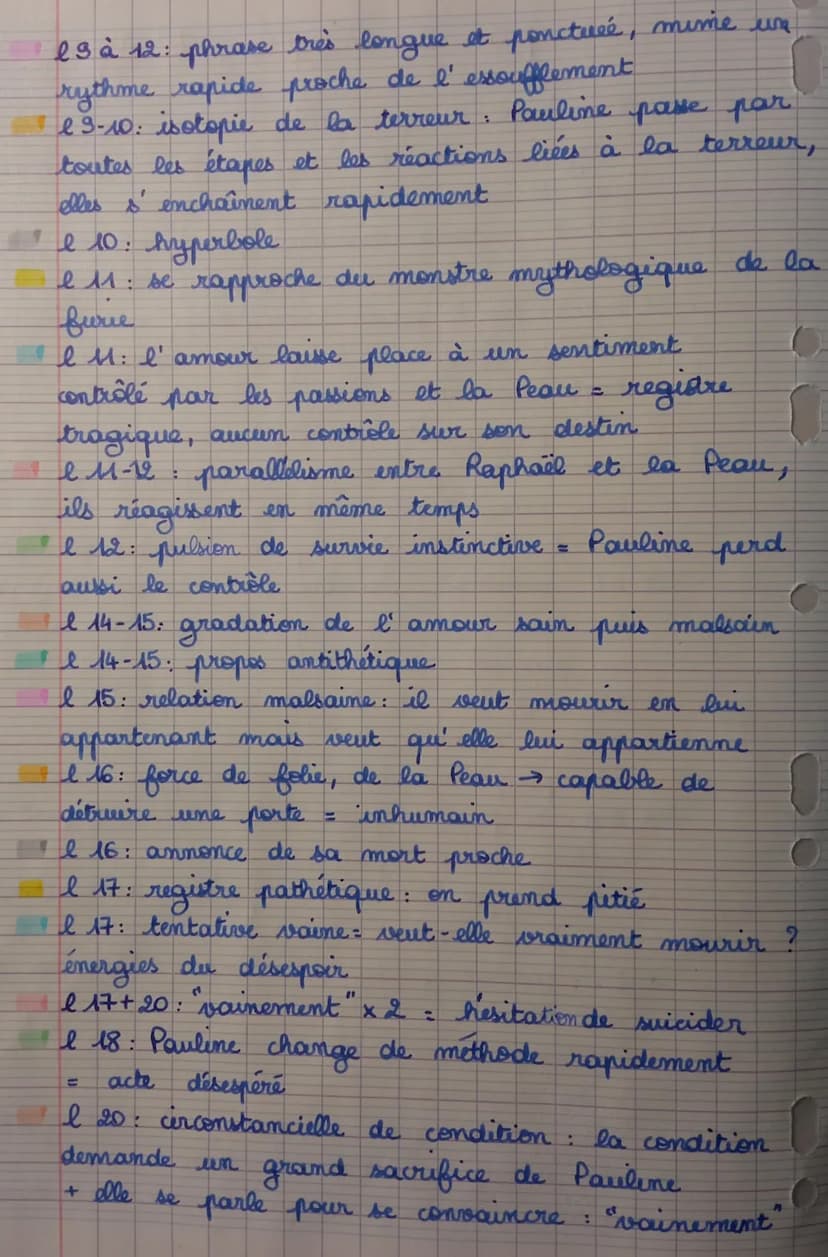 l 9 à 12 : phrase très longue et ponctuée, mime un
rythme rapide proche de l'essoufflement
l 9-10 : isotopie de la terreur : Pauline passe par
toutes les étapes et les réactions liées à la terreur,
elles s'enchaînent rapidement
l 10 : hyperbole
l 11 : se rapproche du monstre mythologique de la
furie
l 11 : l'amour laisse place à un sentiment
contrôlé par les passions et la Peau = registre
tragique, aucun contrôle sur son destin
l 11-12 : parallélisme entre Raphaël et la Peau,
ils réagissent en même temps
l 12 : pulsion de survie instinctive = Pauline perd
aussi le contrôle
l 14-15 : gradation de l'amour sain puis malsain
l 14-15 : propos antithétique
l 15 : relation malsaine : il veut mourir en lui
appartenant mais veut qu'elle lui appartienne
l 16 : force de folie, de la Peau → capable de
détruire une porte = inhumain
l 16 : annonce de sa mort proche
l 17 : registre pathétique : on prend pitié
l 17 : tentative vaine = veut-elle vraiment mourir ?
énergies du désespoir
l 17+20 : "vainement" x 2 = hésitation de suicider
l 18 : Pauline change de méthode rapidement
= acte désespéré
l 20 : circonstancielle de condition : la condition
demande un grand sacrifice de Pauline
+ elle se parle pour se convaincre : "vainement"